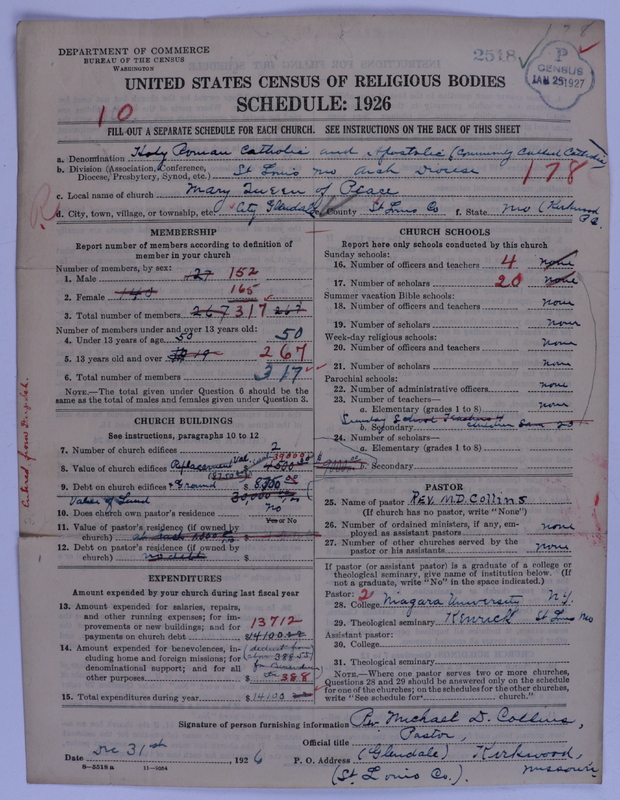 DEPARTMENT OF COMMERCE
BUREAU OF THE CENSUS
WASHINGTON
2518
178
P
CENSUS
JAN 25 1927
UNITED STATES CENSUS OF RELIGIOUS BODIES
SCHEDULE: 1926
10
FILL OUT A SEPARATE SCHEDULE FOR EACH CHURCH. SEE INSTRUCTIONS ON THE BACK OF THIS SHEET
a. Denomination Holy Roman Catholic and Apostolic (Commonly Called Catholic)
b. Division (Association, Conference, Diocese, Presbytery, Synod, etc.) St Louis Mo Arch Diocese
178
c. Local name of church Mary Queen of Peace
d. City, town, village, or township, etc. City Glendale e. County St Louis Co f. State Mo (Kirkwood P.O.
MEMBERSHIP
Report number of members according to definition of member in your church
Number of members, by sex:
1. Male 127 152
2. Female 140 165
3. Total number of members 267 317 267
Number of members under and over 13 years old:
4. Under 13 years of age 50 50
5. 13 years old and over 267
6. Total number of members 317
NOTE.—The total given under Question 6 should be the same as the total of males and females given under Question 3.
CHURCH BUILDINGS
See instructions, paragraphs 10 to 12
7. Number of church edifices 2
8. Value of church edifices Replacement Val.
9. Debt on church edifices + Ground $
Value of Land
10. Does church own pastor's residence? No
Yes or No
11. Value of pastor's residence (if owned by church)
12. Debt on pastor's residence (if owned by church) no debt $
EXPENDITURES
Amount expended by your church during last fiscal year
13. Amount expended for salaries, repairs, and other running expenses; for improvements or new buildings; and for payments on church debt 13712
$14100.00
14. Amount expended for benevolences, including home and foreign missions; for denominational support; and for all other purposes 388
15. Total expenditures during year $14100
CHURCH SCHOOLS
Report here only schools conducted by this church
Sunday schools:
16. Number of officers and teachers 4 none
17. Number of scholars 20 none
Summer vacation Bible schools:
18. Number of officers and teachers none
19. Number of scholars none
Week-day religious schools:
20. Number of officers and teachers none
21. Number of scholars none
Parochial schools:
22. Number of administrative officers none
23. Number of teachers—
a. Elementary (grades 1 to 8) none
Sunday School Teachers 4
b. Secondary
24. Number of scholars—
a. Elementary (grades 1 to 8)
b. Secondary
PASTOR
25. Name of pastor Rev. M.D. Collins
(If church has no pastor, write "None")
26. Number of ordained ministers, if any, employed as assistant pastors none
27. Number of other churches served by the pastor or his assistants none
If pastor (or assistant pastor) is a graduate of a college or theological seminary, give name of institution below. (If not a graduate, write "No" in the space indicated.)
Pastor: 2
28. College Niagara University N.Y.
29. Theological seminary Kenrick St Louis Mo
Assistant pastor:
30. College
31. Theological seminary
NOTE.—Where one pastor serves two or more churches, Questions 28 and 29 should be answered only on the schedule for one of the churches; on the schedules for the other churches, write "See schedule for church."
Signature of person furnishing information Rev. Michael D. Collins,
Official title Pastor,
Date Dec 31st 1926 P. O. Address (Glendale) Kirkwood,
(St. Louis Co.). Missouri
8—5518 a
Entered from Duplicate.